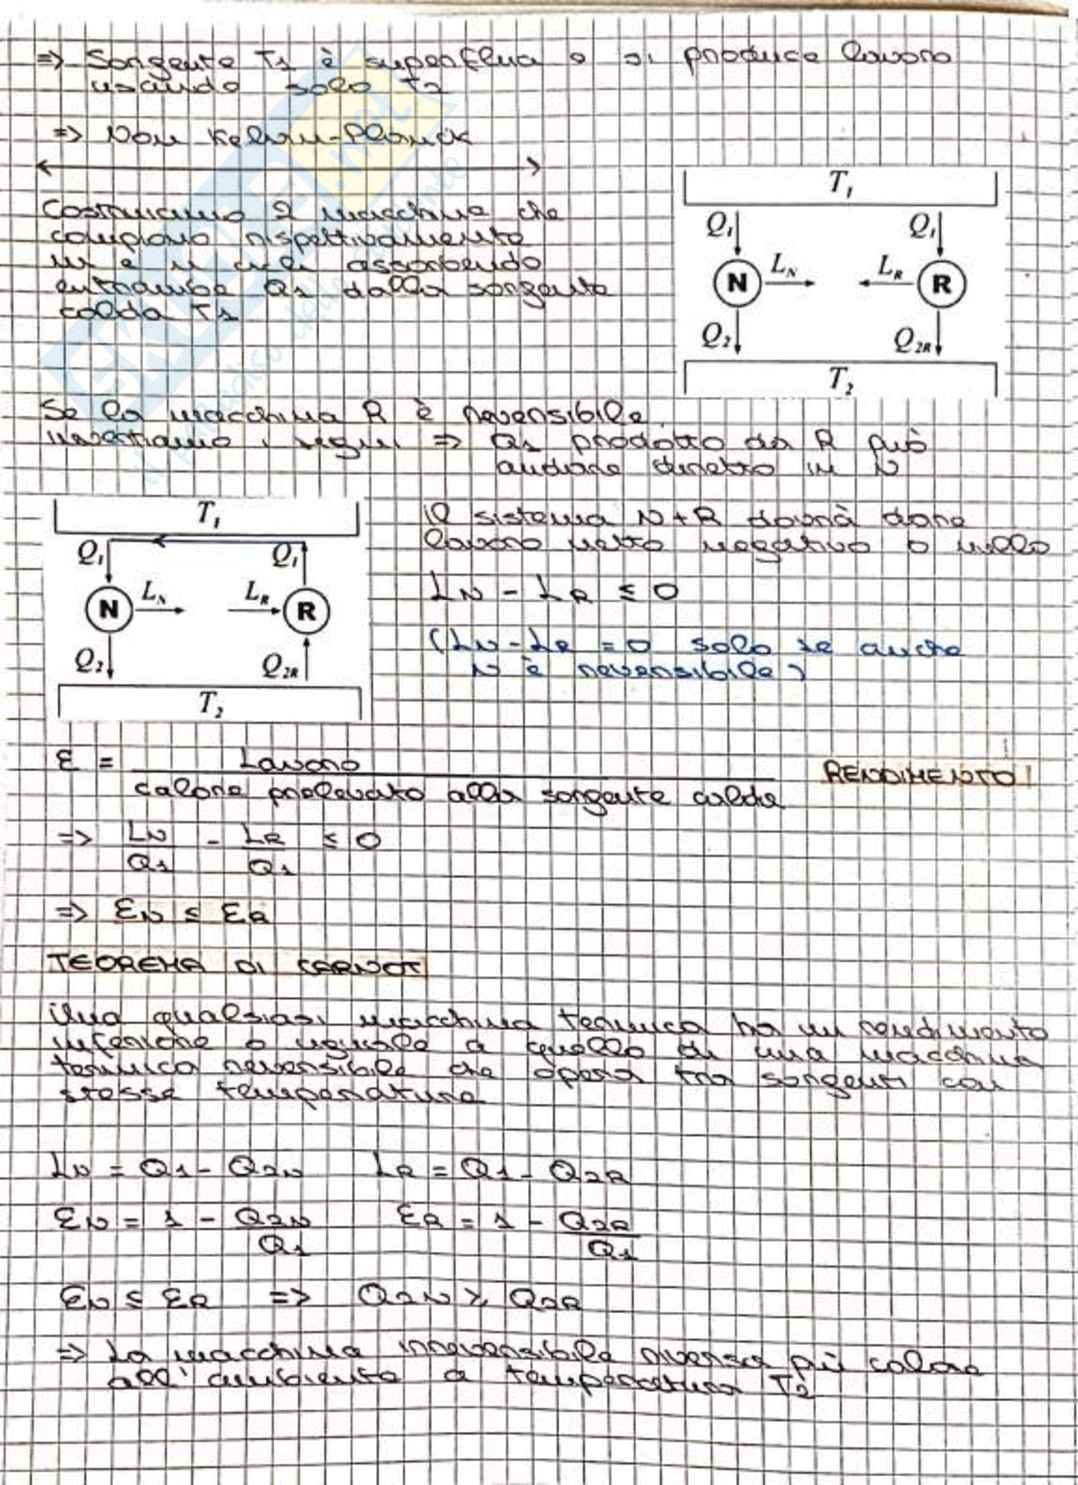 => Sorgente T1 è superflua e si produce lavoro
usando solo T2
=> Non Kelvin-Planck
Costruiamo 2 macchine che
compiono rispettivamente
m e n cicli assorbendo
entrambe Q1 dalla sorgente
calda T1
T1
Q1 Q1
N LN LR R
Q2 Q2R
T2
Se la macchina R è reversibile,
invertiamo i segni => Q1 prodotto da R può
andare diretto in N
T1
Q1 Q1
N LN LR R
Q2 Q2R
T2
Il sistema N+R dovrà dare
lavoro netto negativo o nullo
LN - LR ≤ 0
(LN-LR = 0 solo se anche
N è reversibile)
ε = Lavoro
calore prelevato alla sorgente calda
RENDIMENTO!
=> LN/Q1 - LR/Q1 ≤ 0
=> εN ≤ εR
TEOREMA DI CARNOT
Una qualsiasi macchina termica ha un rendimento
inferiore o uguale a quello di una macchina
termica reversibile che opera tra sorgenti con
stesse temperature
LN = Q1 - Q2N LR = Q1 - Q2R
εN = 1 - Q2N/Q1 εR = 1 - Q2R/Q1
εN ≤ εR => Q2N ≥ Q2R
=> La macchina irreversibile riversa più calore
all'ambiente a temperatura T2